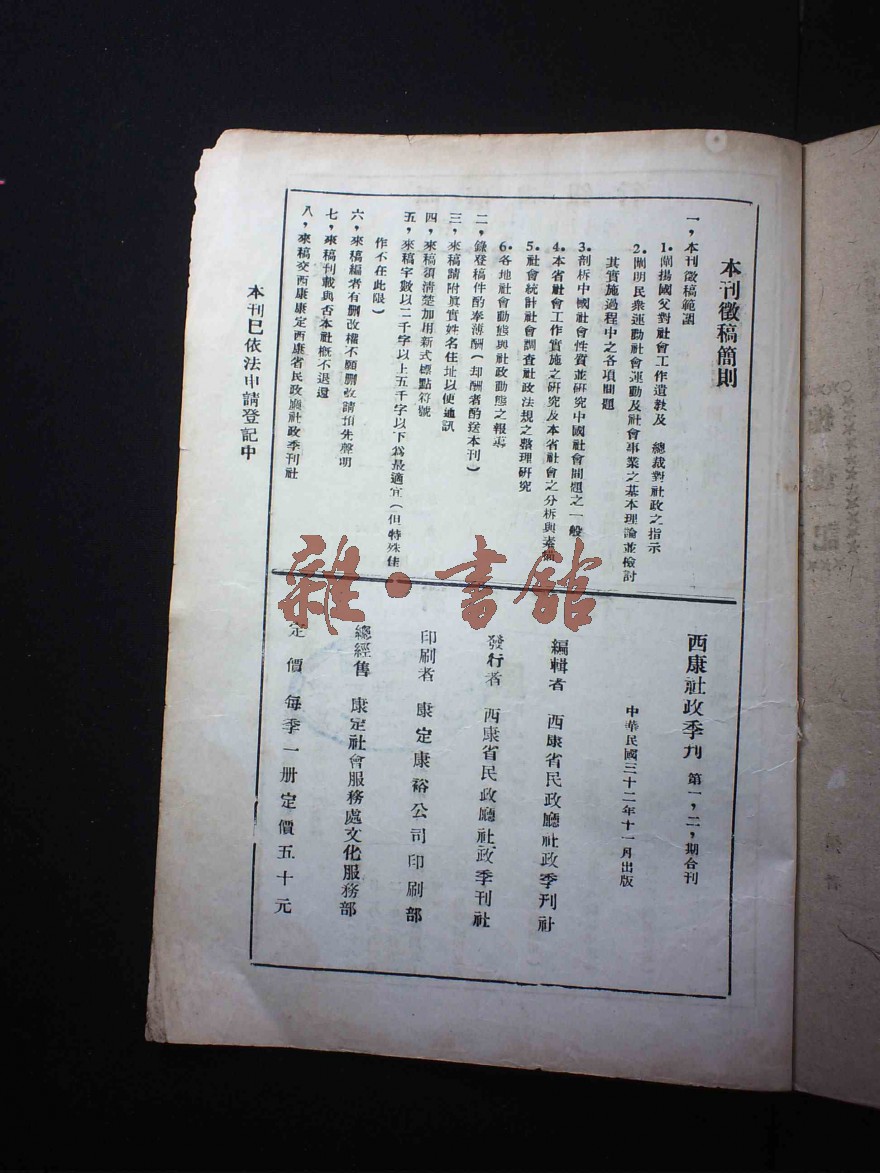 本刊徵稿簡則
一，本刊徵稿範圍
1. 闡揚國父對社會工作遺敎及　總裁對社政之指示
2. 闡明民衆運動社會運動及社會事業之基本理論並檢討
其實施過程中之各項問題
3. 剖析中國社會性質並研究中國社會問題之一般
4. 本省社會工作實施之研究及本省社會之分析與素描
5. 社會統計社會調査社政法規之整理研究
6. 各地社會動態與社政動態之報導
二，錄登稿件酌奉薄酬（却酬者酌送本刊）
三，來稿請附眞實姓名住址以便通訊
四，來稿須淸楚加用新式標點符號
五，來稿字數以二千字以上五千字以下爲最適宜（但特殊佳
作不在此限）
六，來稿編者有删改權不願删改請預先聲明
七，來稿刊載與否本社槪不退還
八，來稿交西康康定西康省民政廳社政季刊社
本刊已依法申請登記中
西康社政季刋　第一，二，期合刊
中華民國三十二年十一月出版
編輯者　西康省民政廳社政季刊社
發行者　西康省民政廳社政季刊社
印刷者　康定康裕公司印刷部
總經售　康定社會服務處文化服務部
定價　每季一册定價五十元
雜·書館